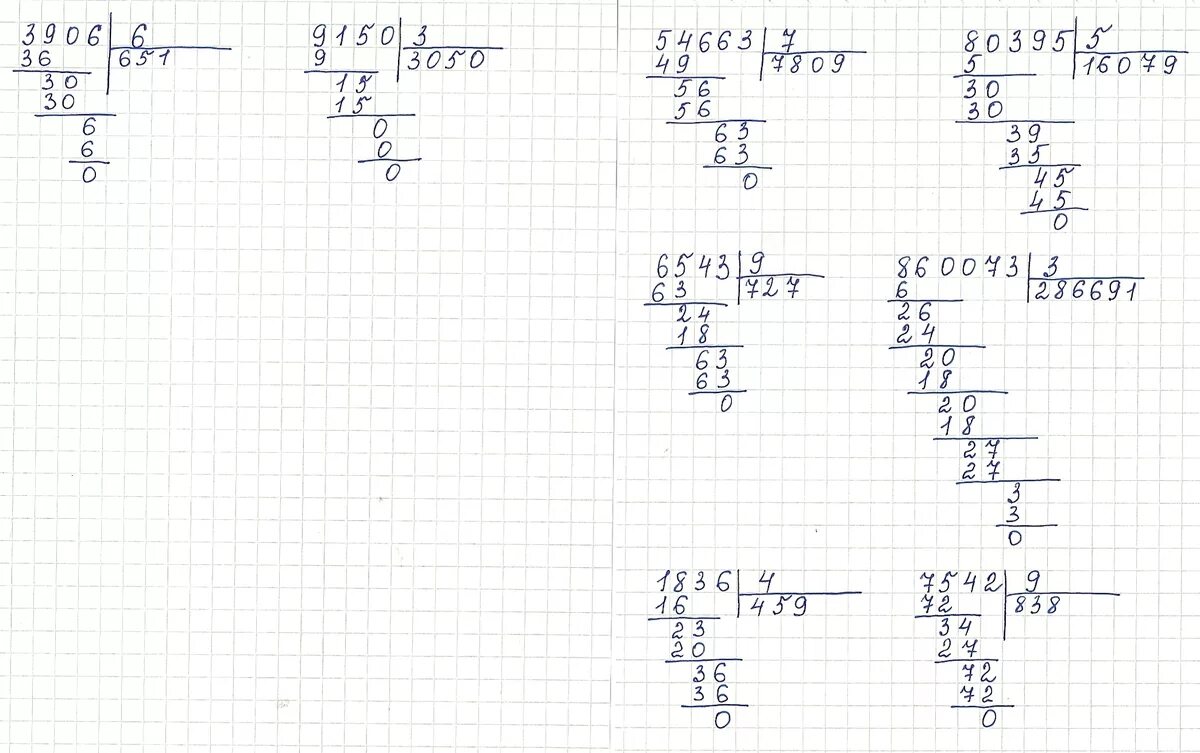 3906 6
36 651
30
30
6
6
0
9150 3
9 3050
15
15
0
0
0
54663 7
49 7809
56
56
63
63
0
80395 5
5 16079
30
30
39
35
45
45
0
6543 9
63 727
24
18
63
63
0
860073 3
6 286691
26
24
20
18
20
18
27
27
3
3
0
1836 4
16 459
23
20
36
36
0
7542 9
72 838
34
27
72
72
0